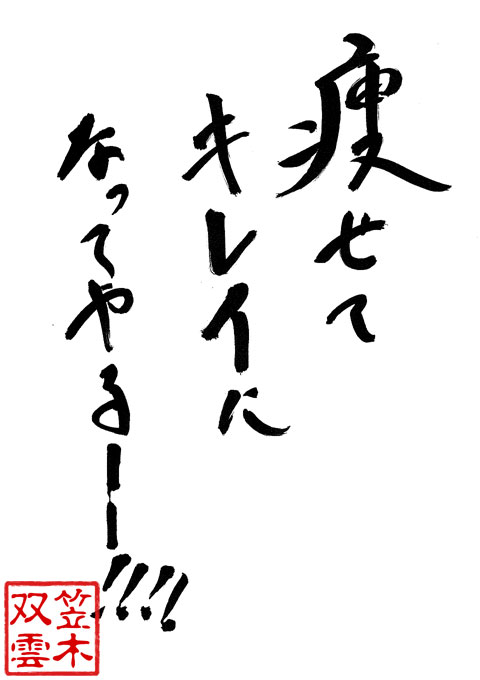 痩せて
キレイに
なってやるーー!!!!
笠木
双雲